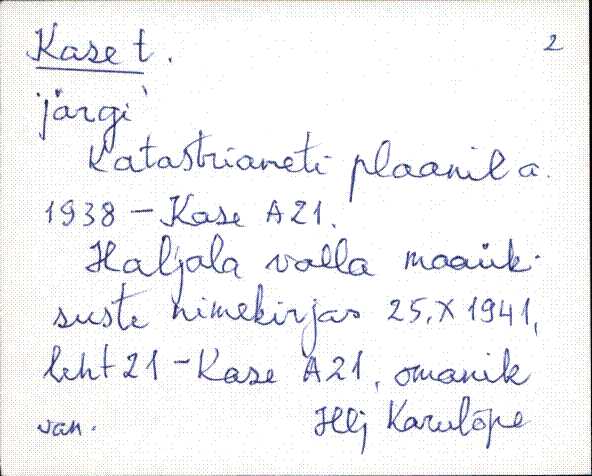 Kase t. 2
järgi
Katastriameti plaanil a.
1938 - Kase A21.
Haljala valla maaük-
suste nimekirjas 25.X 1941,
leht 21 - Kase A21, omanik
van. Karulõpe